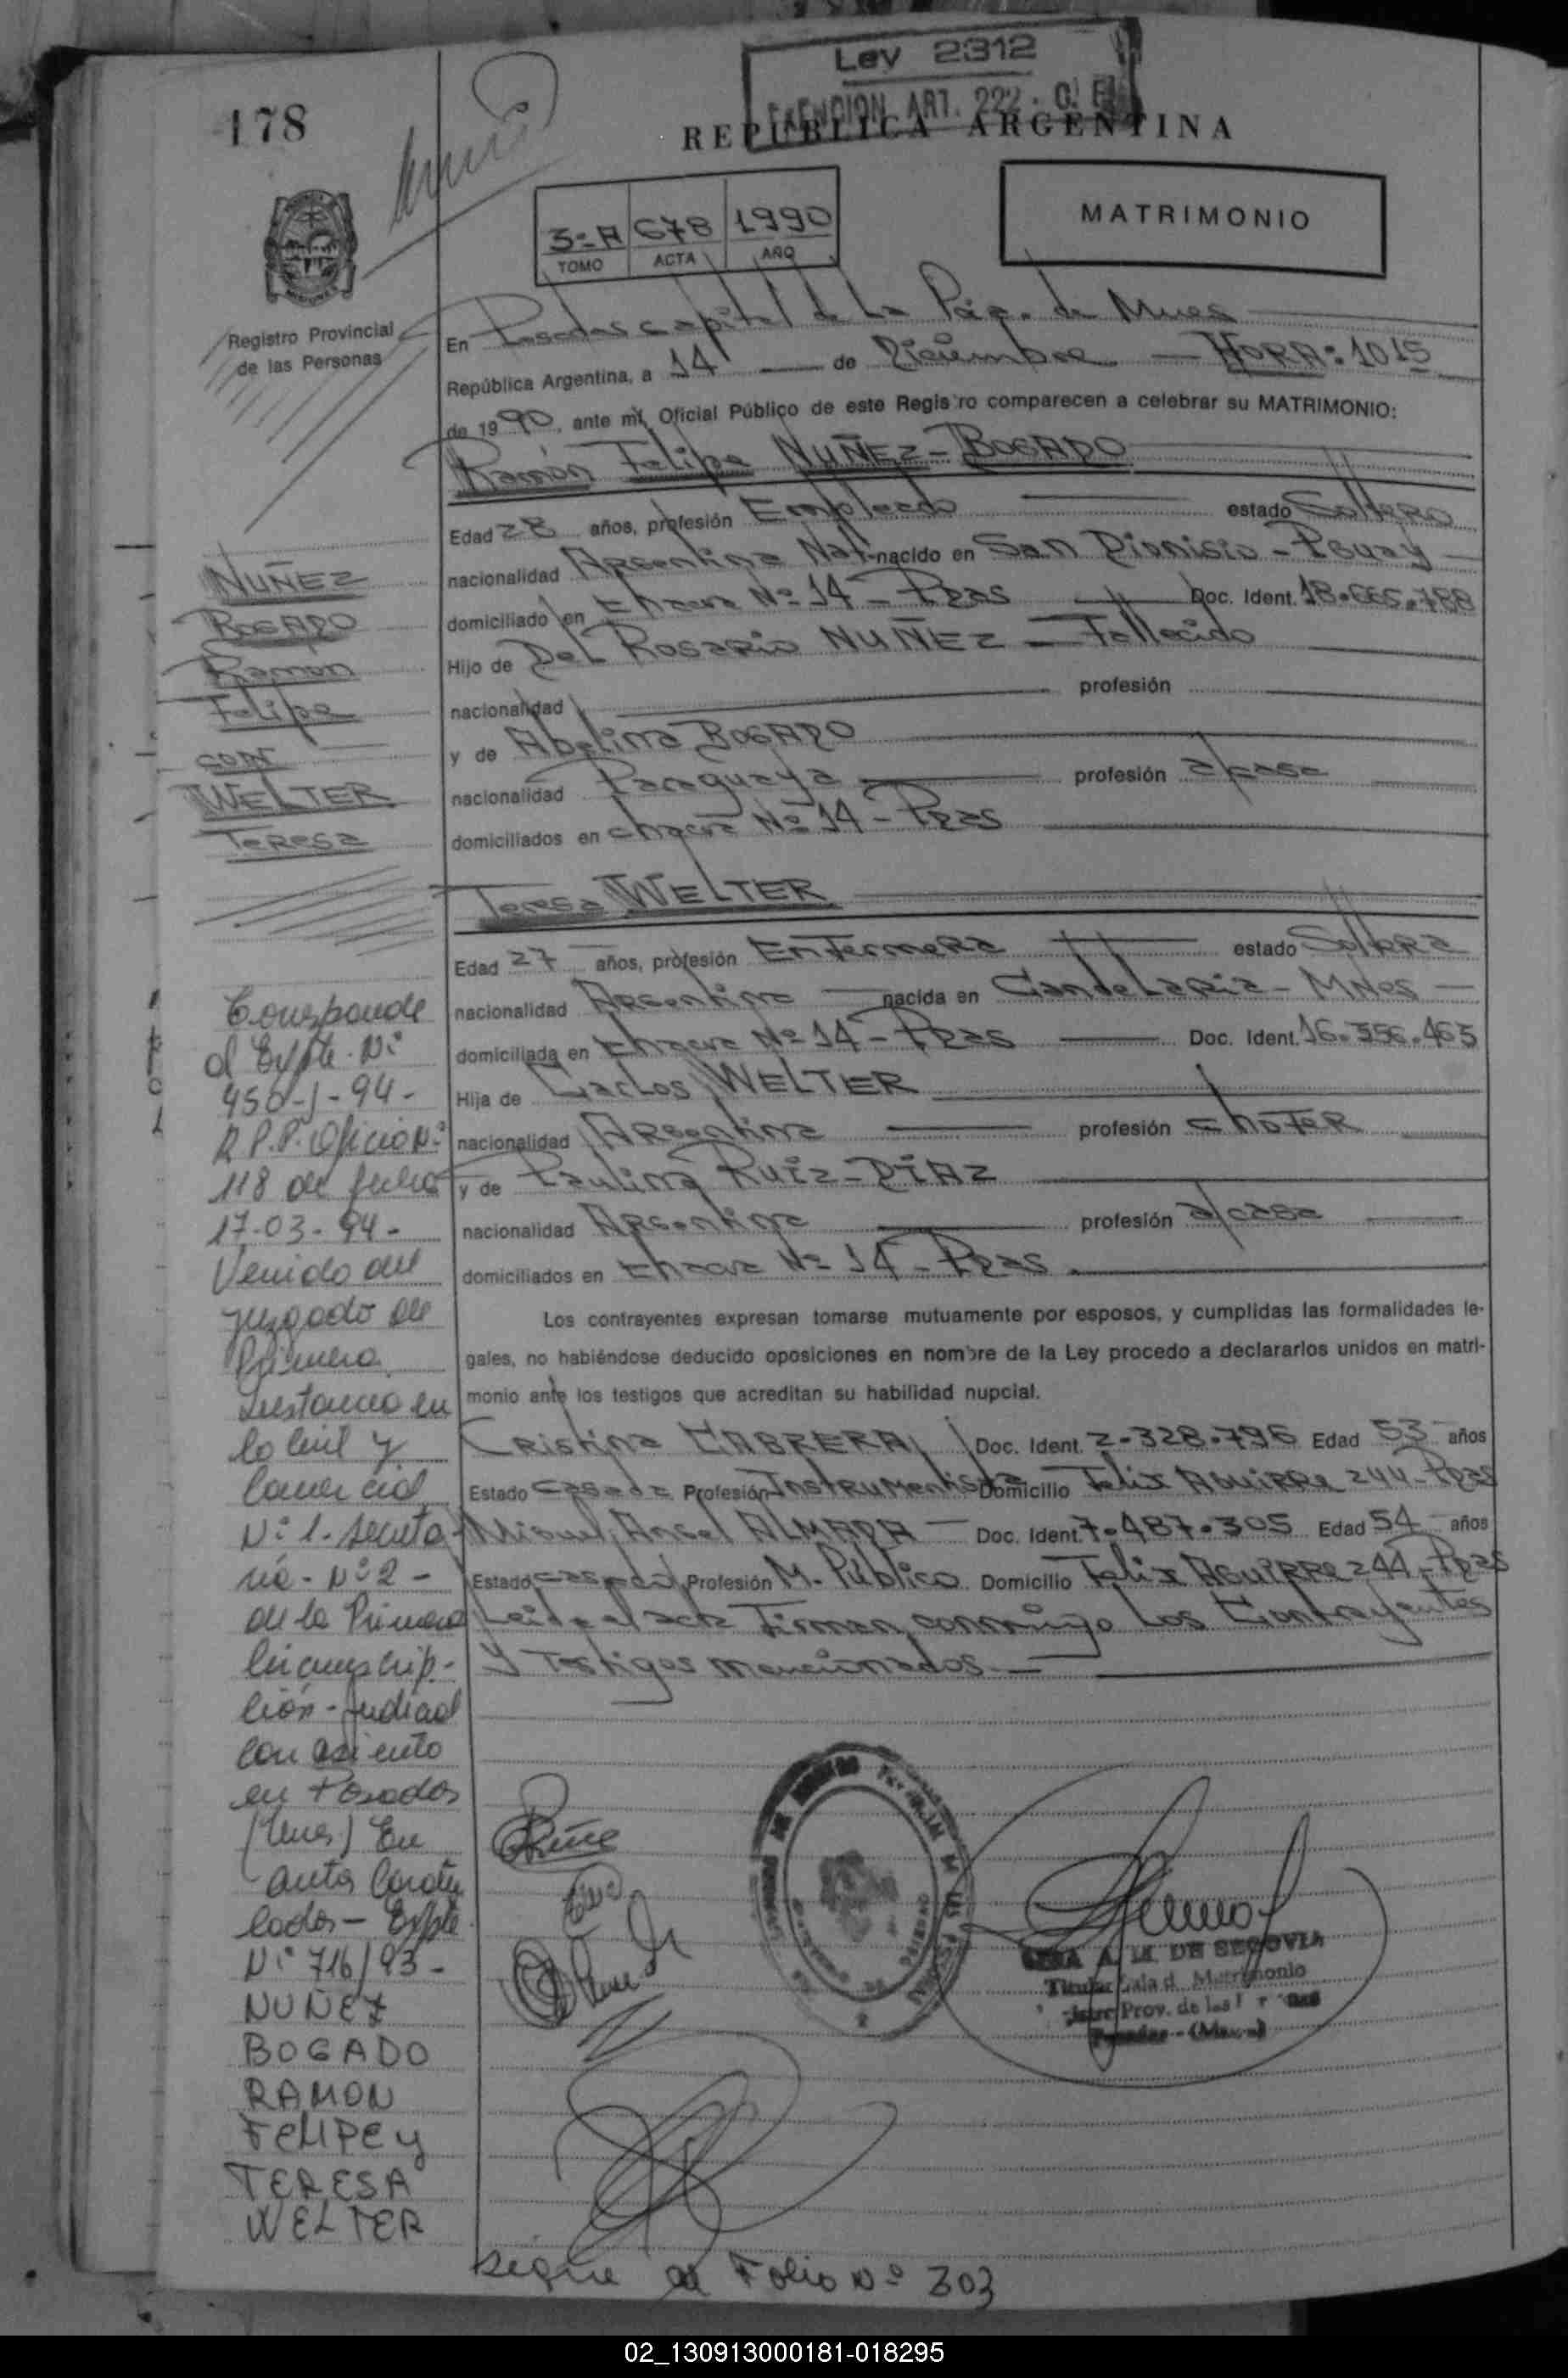 178
Ley 2312
EXENCION ART. 222 - C. F.
REPUBLICA ARGENTINA
3º-A 678 1990
TOMO ACTA AÑO
MATRIMONIO
Registro Provincial
de las Personas
En Posadas capital de La Pcia. de Mnes
República Argentina, a 14 de Diciembre - HORA: 1015
de 1990, ante mí, Oficial Público de este Registro comparecen a celebrar su MATRIMONIO:
Ramón Felipe NUÑEZ-BOGADO
Edad 28 años, profesión Empleado estado Soltero
nacionalidad Argentina Nat. nacido en San Dionisio - Pguay
domiciliado en chacra Nº 14 - Pdas Doc. Ident. 18.665.788
Hijo de Del Rosario NUÑEZ - Fallecido
nacionalidad profesión
y de Abelina BOGADO
nacionalidad Paraguaya profesión a/casa
domiciliados en chacra Nº 14 - Pdas
NUÑEZ
BOGADO
Ramon
Felipe
con
WELTER
Teresa
Teresa WELTER
Edad 27 años, profesión Enfermera estado Soltera
nacionalidad Argentina nacida en Candelaria - Mnes
domiciliada en chacra Nº 14 - Pdas Doc. Ident. 16.356.463
Hija de Carlos WELTER
nacionalidad Argentina profesión chofer
y de Paulina RUIZ-DIAZ
nacionalidad Argentina profesión a/casa
domiciliados en chacra Nº 14 - Pdas.
Los contrayentes expresan tomarse mutuamente por esposos, y cumplidas las formalidades le-
gales, no habiéndose deducido oposiciones en nombre de la Ley procedo a declararlos unidos en matri-
monio ante los testigos que acreditan su habilidad nupcial.
Cristina CABRERA Doc. Ident. 2-328.796 Edad 53 años
Estado casada Profesión Instrumentista Domicilio Felix Aguirre 244 - Pdas
Miguel Angel ALMADA - Doc. Ident. 7.487.305 Edad 54 años
Estado casado Profesión M. Público Domicilio Felix Aguirre 244 - Pdas
Leida el acta Firman conmigo Los Contrayentes
y Testigos mencionados.
Corresponde
al Expte. Nº
450-J-94-
R.P.P. Oficio Nº
118 de fecha
17-03-94-
Venido del
juzgado de
Primera
Instancia en
lo Civil y
Comercial
Nº 1. Secreta-
ria - Nº 2 -
de la Primera
Circunscrip-
ción - Judicial
con asiento
en Posadas
(Mnes) En
autos Caratu
lados - Expte
Nº 716/93-
NUÑEZ
BOGADO
RAMON
FELIPE y
TERESA
WELTER
A. M. DE SEGOVIA
Titular Sala d. Matrimonio
Prov. de las
Posadas - (Mnes)
sigue al Folio Nº 303
02_130913000181-018295